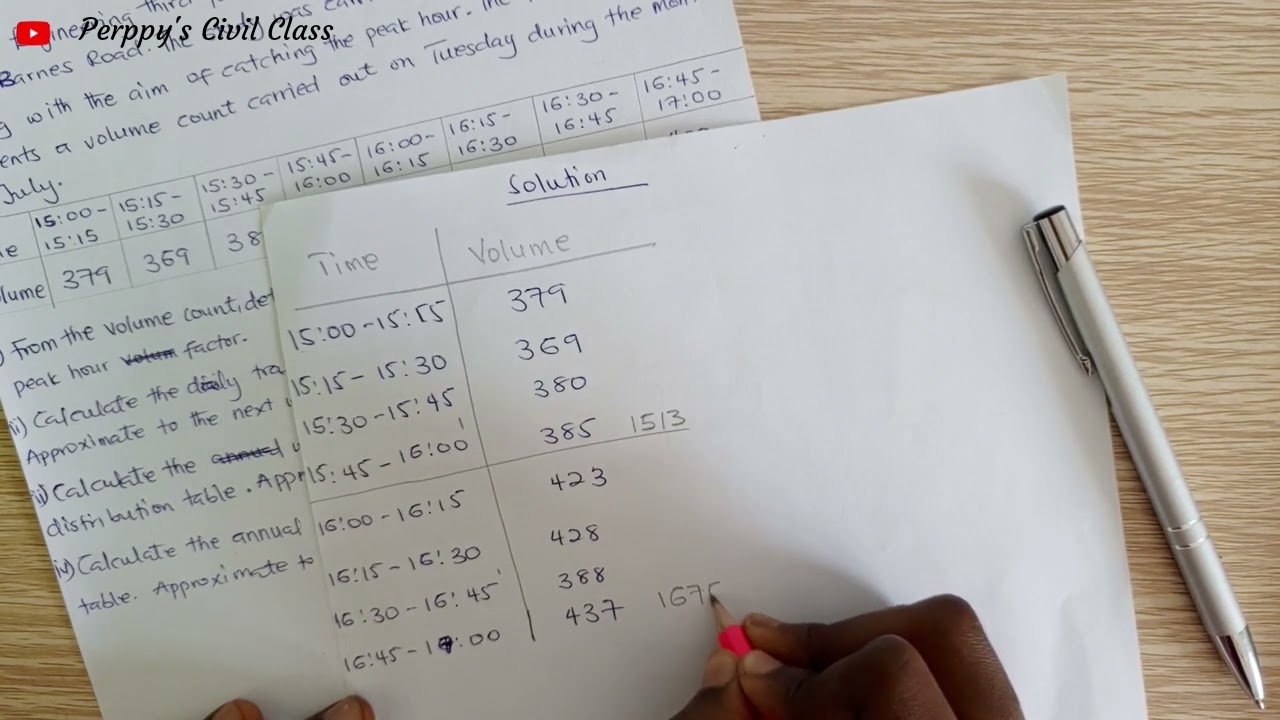 Perppy's Civil Class
Engineering third
Barnes Road. The was
with the aim of catching the peak hour. The
a volume count carried out on Tuesday during the
July.
15:00- 15:15- 15:30- 15:45- 16:00- 16:15- 16:30- 16:45-
15:15 15:30 15:45 16:00 16:15 16:30 16:45 17:00
379 369 38
From the volume count, det
peak hour factor.
Calculate the daily tra
Approximate to the next
Calculate the
distribution table. Appr
iv) Calculate the annual
table. Approximate to
Solution
Time Volume
15:00-15:15 379
15:15-15:30 369
15:30-15:45 380
15:45-16:00 385 1513
16:00-16:15 423
16:15-16:30 428
16:30-16:45 388
16:45-17:00 437 1675